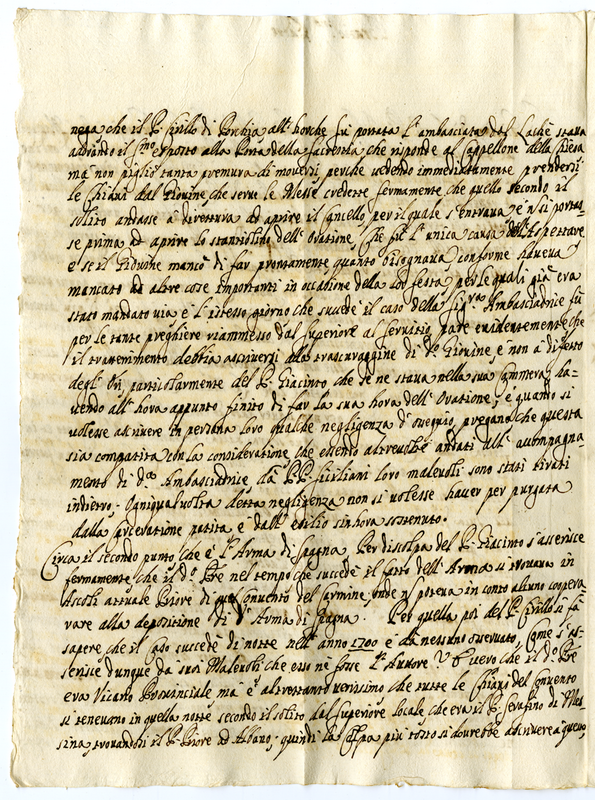 nega che il P. Cirillo di Porchia all' hor che fù portata l' ambasciata dal Lachè stava
avanti il SSmo esposto alla Porta della sacrestia che risponde al Cappellone della Chiesa
mà non pigliò tanta premura di muoversi, perche vedendo immediatamente prendersi
le Chiavi dal Giovine, che serve le Messe credette fermamente, che quello secondo il
solito andasse à drittura ad aprire il Cancello, per il quale s' entrava, e nō si portas-
se prima ad aprire lo stanziolino dell' Oratione, che fù l' unica causa dell' Aspettare,
e se il Giovine mancò di far prontamente quanto bisognava conforme haveva
mancato ad altre cose importanti in occasione della festa, per le quali già era
stato mandato via, e l' istesso giorno che succede il caso della Sigra Ambasciadrice fù
per le tante preghiere riammesso dal Superiore al servitio, pare evidentemente che
il trattenimento debbia ascriversi alla trascuraggine di do Giovine, e non à difetto
degl' particolarmente del P. Giacinto che se ne stava nella sua Cammera, ha-
vendo all' hora appunto finito di far la sua hora dell' Oratione, e quanto si
volesse ascrivere in persona loro qualche negligenza d' ossequio, pregano, che questa
sia compatita con la consideratione, che essendo altre volte andati all' accompagna-
mento di da Ambasciadrice da PP. Siciliani loro malevoli sono stati tirati
indietro. Ogniqualvolta detta negligenza non si volesse haver per purgata
dalla carceratione patita, e dall' esilio sin hora sostenuto.
Circa il secondo punto, che è l' Arma di Spagna. Per discolpa del P. Giacinto s' asserisce
fermamente, che il do Pre nel tempo che succede il fatto dell' Arma si trovava in
Ascoli attuale Priore di quel Convento del Carmine, onde nō poteva in conto alcuno coopera-
rare alla depositione di da Arma di Spagna. Per quella poi del P. Cirillo si fà
sapere che il caso succedè di notte nell' anno 1700 e da nessuno osservato, Come s' as-
serisce dunque da suoi Malevoli che esso nè fosse l' Autore. È vero che il do Pre
era Vicario Provinciale mà è altrettanto verissimo che tutte le Chiavi del Convento
si tenevano in quella notte secondo il solito dal Superiore locale che era il P. Serafino di Mes-
sina, trovandosi il P. Priore ad Albano; quindi la Colpa più tosto si dovrebbe ascrivere à questi,